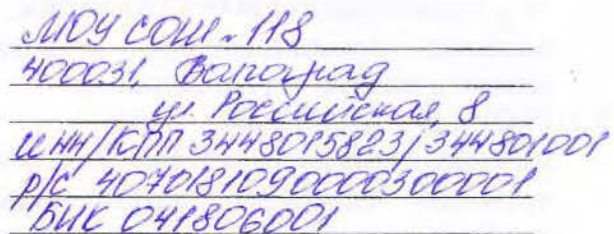 МОУ СОШ № 118
400031, Волгоград
ул. Российская, 8
ИНН/КПП 3448015823/344801001
р/с 40701810900003000001
БИК 041806001